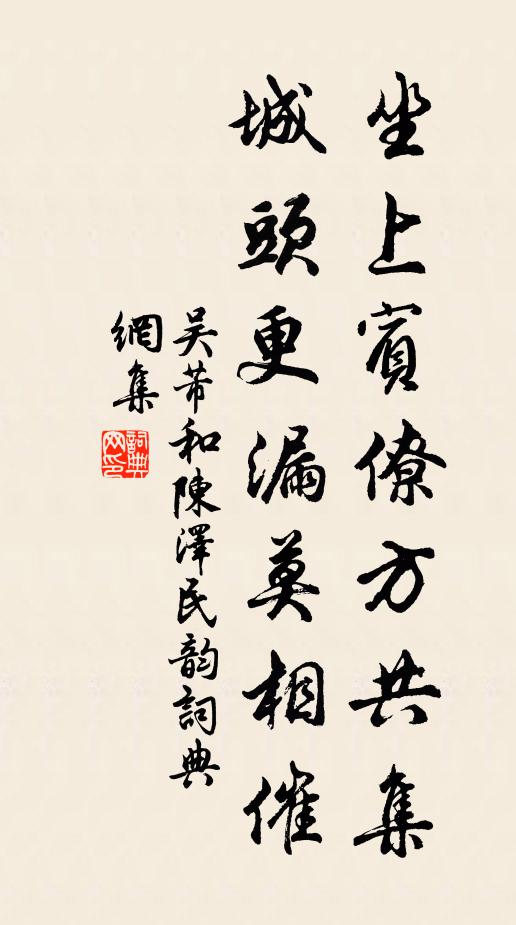 坐上賓僚方共集
城頭更漏莫相催
吴芾和陳澤民韵詞典
網集
詞典网印